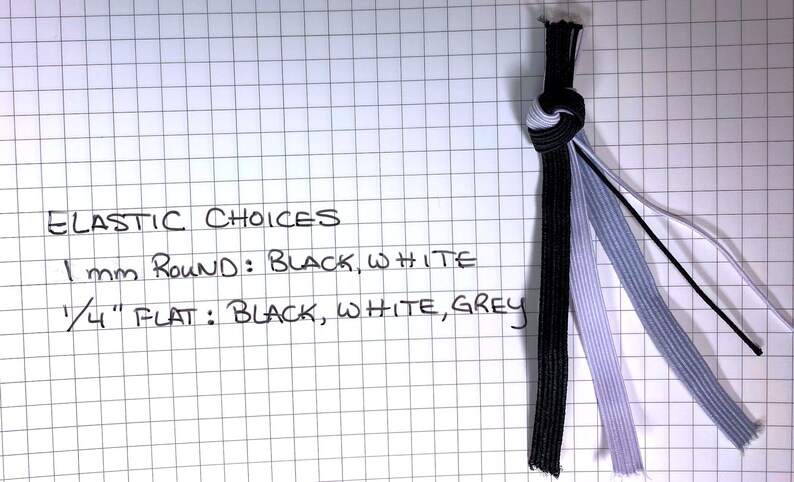 ELASTIC CHOICES
1 mm ROUND: BLACK, WHITE
1/4" FLAT: BLACK, WHITE, GREY